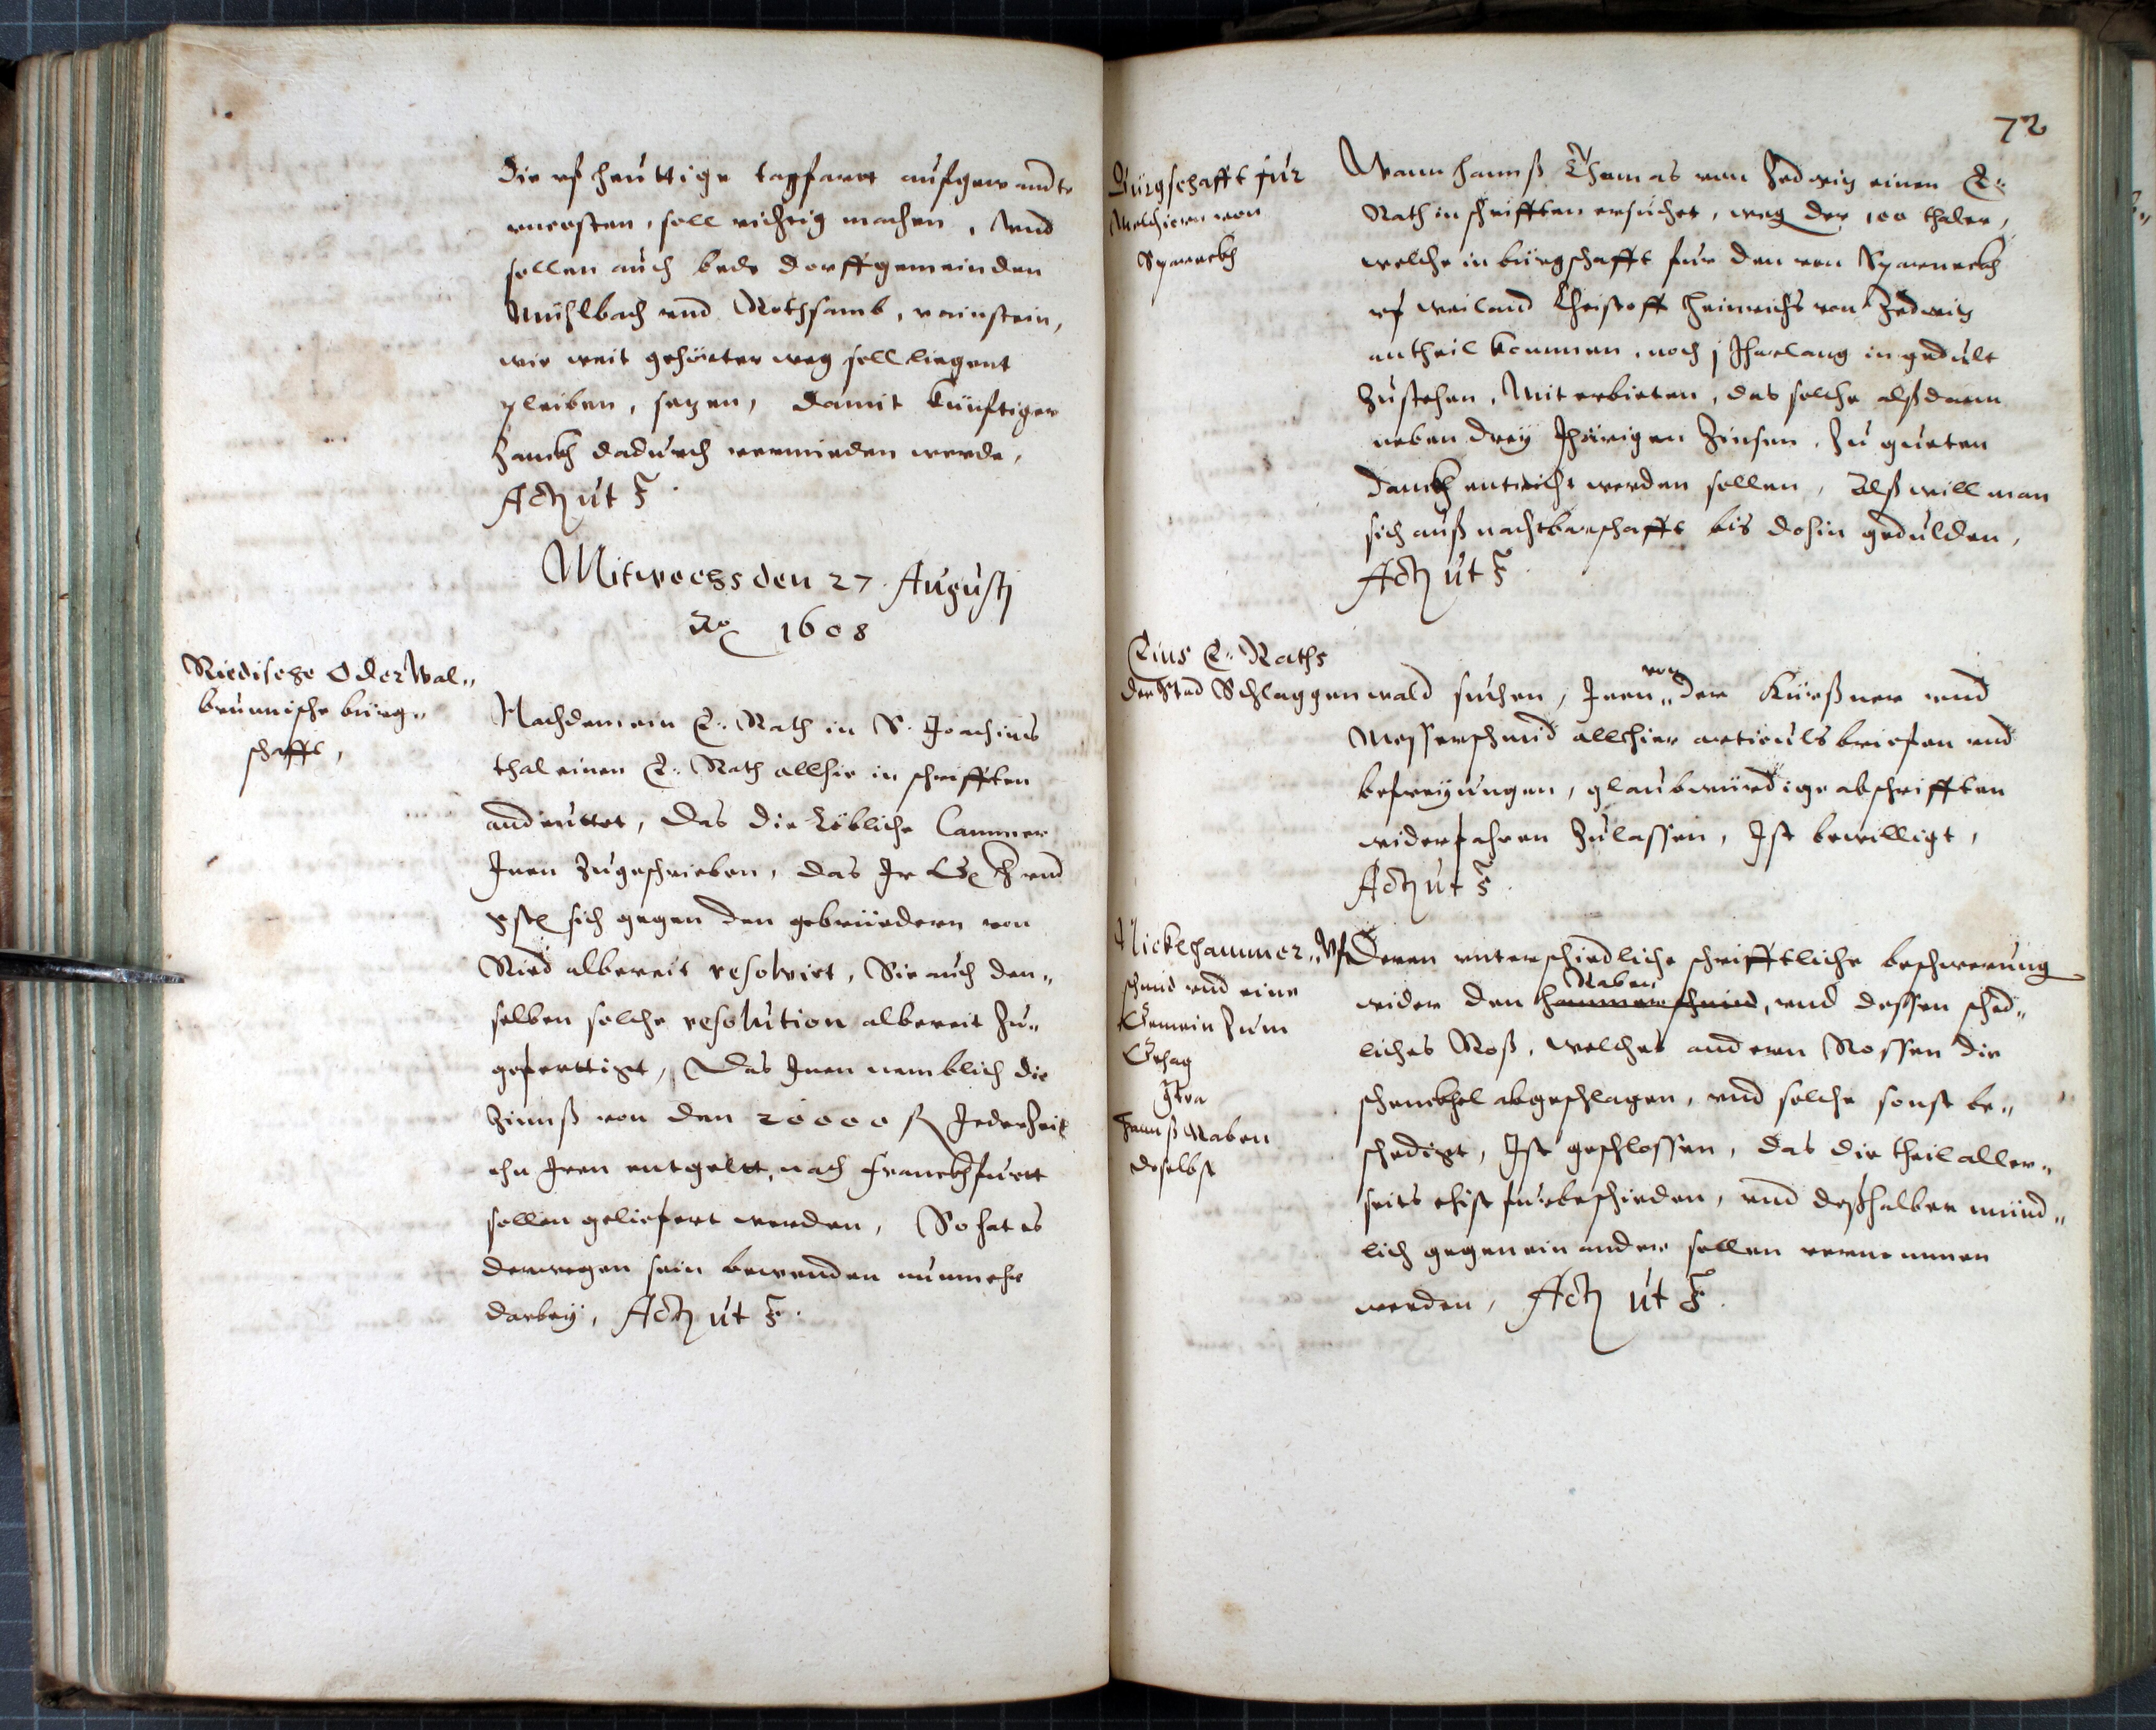 die uf heuttige tagfarrt aufgewandte
uncosten, soll richtig machen, Vnd
sollen auch bede dorffgemeinden
Mühlbach vnd Rothsamb, rainstein,
wie weit gehüeter weg soll liegent
pleiben, sezen, damit künftiger
Zanckh dadurch vermieden werde,
Actum ut s.
Mitwochs den 27. Augusti
Ao 1608
Riedische Oder Wal„
brunnische bürg„
schafft,
Nachdem ein E: Rath in S. Joachims
thal einen E: Rath allhie in schrifften
andeuttet, Das die Löbliche Cammer
Inen zugeschrieben, das Ir vnd
sich gegen den gebrüedern von
Ried albereit resolvirt, Sie auch den„
selben solche resolution albereit zu„
geferttigt, Das Inen nemblich die
Zinnß von den 20000 fl Jederzeit
ohn Iren entgeltt, nach Franckhfurtt
sollen geliefert werden, So hat es
derwegen sein bewenden nunmehr
darbey, Actum ut s.
72
Bürgschafft für
Melchiorn von
Sparneckh
Wann Hannß Thomas von Zedwiz einen E:
Rath in schrifften ersuchet, weg der 100 thaler,
welche in bürgschafft fur den von Sparneckh
uf weiland Christoff Heinrichs von Zedwiz
antheil kommen, noch j Jharlang in gedult
Zustehen, Mit erbieten, das solche alßdann
neben drey Jhärigen Zinsen, zu gueten
danckh entricht werden sollen, Alß will man
sich auß nachtbarschafft bis dohin gedulden,
Actum ut s.
Eins E: Raths
der Stad Schlaggenwald suchen, Inen „ der Kürßner vnd
von
Messerschmid allhier articulsbriefen vnd
befreyungen, glaubwürdige abschrifften
widerfahren Zulassen, Ist bewilligt,
Actum ut s.
Nicklhammer„
schmid vnd eine
Gemein Zum
Gehag
Ctra
Hannß Raben
doselbst
Vf Deren vnterschiedliche schrifftliche beschwerung
Raben
wider den Hammerschmid, vnd dessen sched„
liches Roß, welches andern Rossen die
schenckhel abgeschlagen, vnd solche sonst be„
schedigt, Ist geschlossen, das die theil aller„
seits ehist fürbeschieden, vnd deßhalben münd„
lich gegen einander sollen vernommen
werden, Actum ut s.